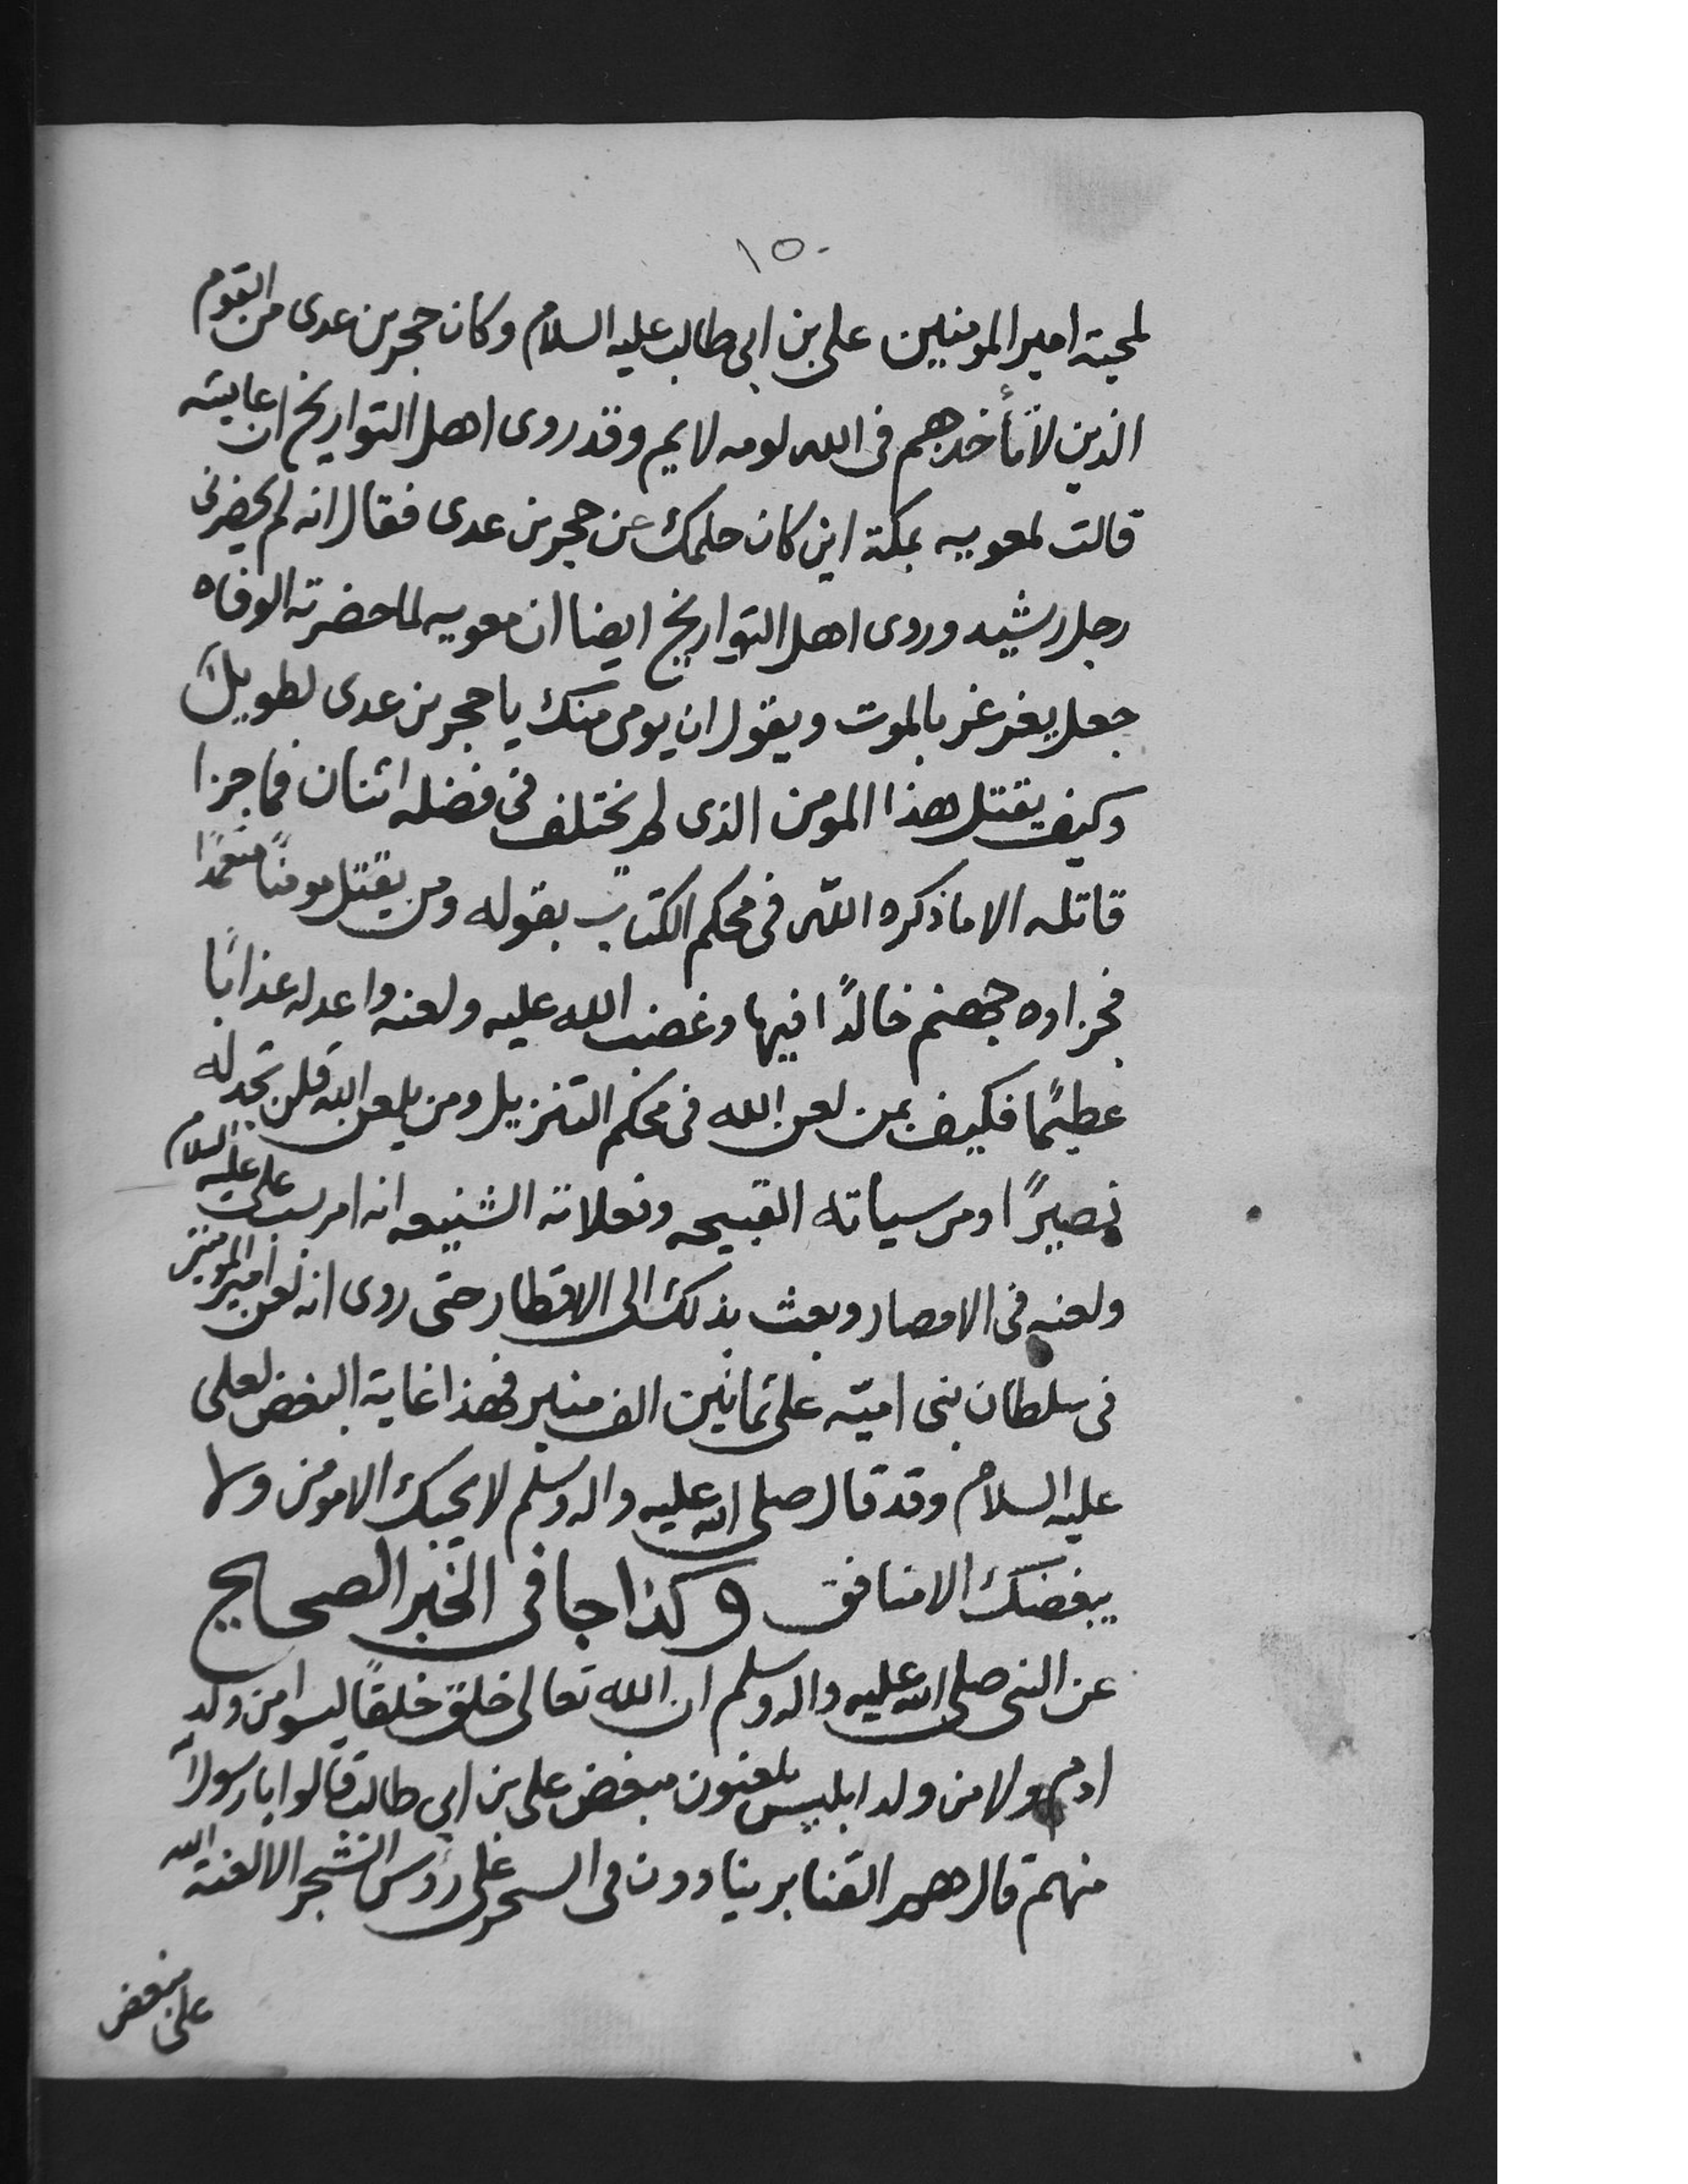 ١٥٠
لمحبة امير المومنين على بن ابى طالب عليه السلام وكان حجر بن عدى من القوم
الذين لا تأخذهم فى الله لومه لايم وقد روى اهل التواريخ ان عايشه
قالت لمعويه بمكة اين كان حلمك عن حجر بن عدى فقال انه لم يحضرنى
رجل رشيد وروى اهل التواريخ ايضا ان معويه لما حضرته الوفاه
جعل يغرغر بالموت ويقول ان يومى منك يا حجر بن عدى لطويل
وكيف يقتل هذا المومن الذى لم يختلف فى فضله اثنان فما جزا
قاتله الا ما ذكره الله فى محكم الكتاب بقوله ومن يقتل مومنًا متعمدًا
فجزاوه جهنم خالدًا فيها وغضب الله عليه ولعنه واعد له عذابًا
عظيمًا فكيف بمن لعن الله فى محكم التنزيل ومن يلعن الله فلن تجد له
نصيرًا ومن سياته القبيحه وفعلاته الشنيعه انه امر بسب على عليه السلام
ولعنه فى الامصار وبعث بذلك الى الاقطار حتى روى انه لعن امير المومنين
فى سلطان بنى اميّه على ثمانين الف منبر فهذا غاية البغض لعلى
عليه السلام وقد قال صلى الله عليه واله وسلم لا يحبك الا مومن ولا
يبغضك الا منافق وكذا جا فى الخبر الصحايح
عن النبى صلى الله عليه واله وسلم ان الله تعالى خلق خلقًا ليسوا من ولد
ادم ولا من ولد ابليس يلعنون مبغض على بن ابى طالب قالوا يا رسول الله
منهم قال هم القنابر ينادون فى السحر على رؤس الشجر الا لعنة الله
على مبغض